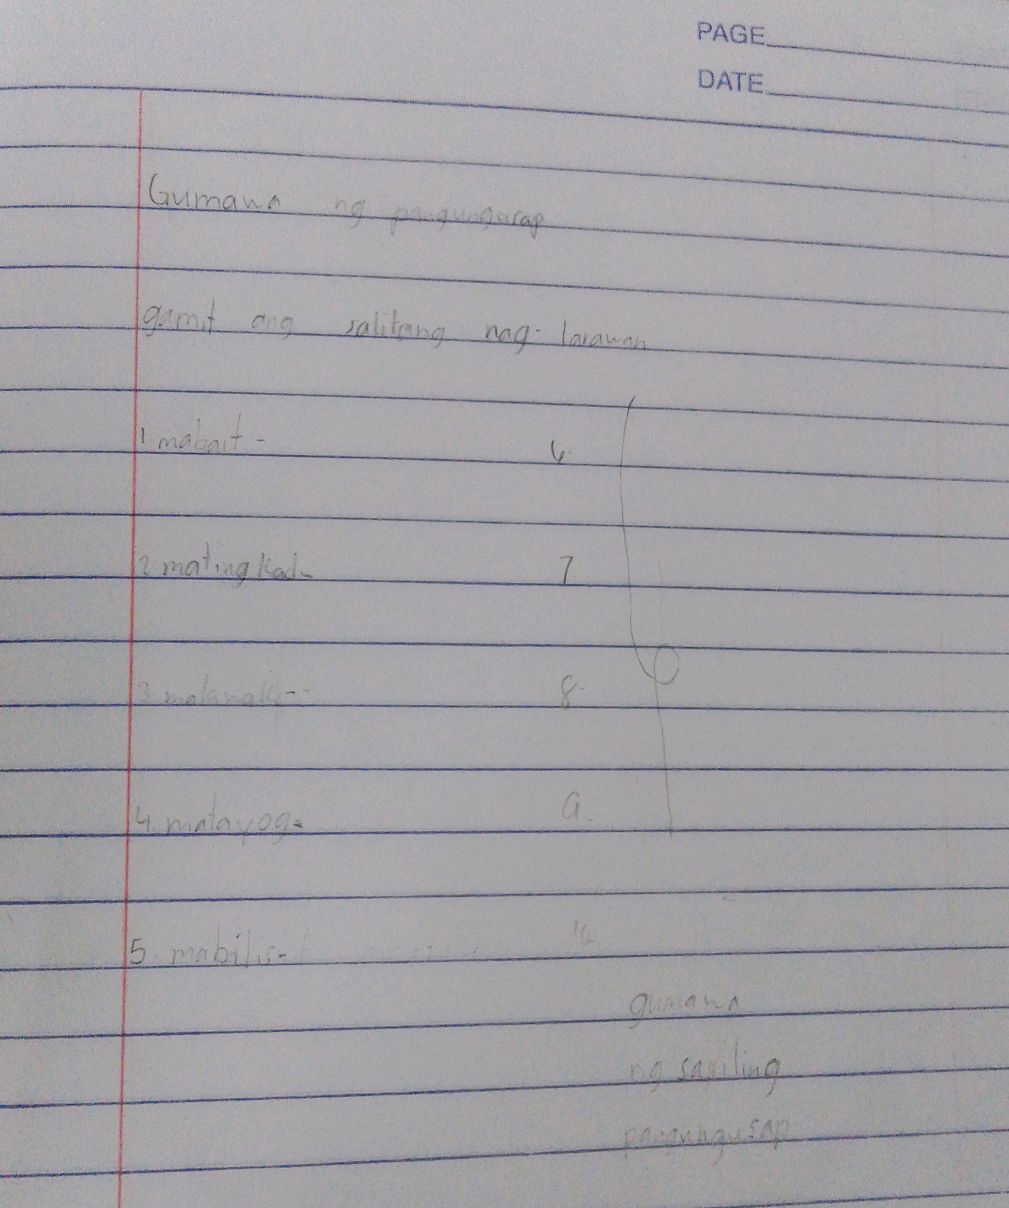 PAGE
DATE
Gumawa ng pangungusap
gamit ang salitang nag-larawan
1 mabait -
6.
2 matingkad -
7
8.
4. matayog =
9.
5. mabilis -
10.
gumawa
ng sariling
pangungusap